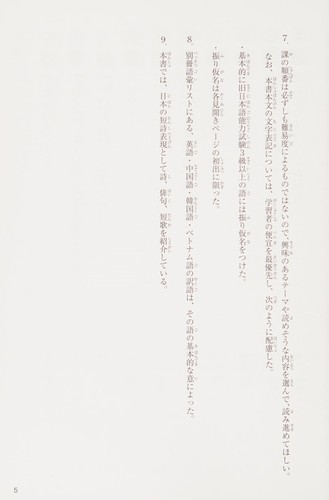 7. 課の順番は必ずしも難易度によるものではないので、興味のあるテーマや読めそうな内容を選んで、読み進めてほしい。
なお、本書本文の文字表記については、学習者の便宜を最優先し、次のように配慮した。
・基本的に旧日本語能力試験3級以上の語には振り仮名をつけた。
・振り仮名は各見開きページの初出に限った。
8 別冊語彙リストにある、英語・中国語・韓国語・ベトナム語の訳語は、その語の基本的な意によった。
9 本書では、日本の短詩表現として詩、俳句、短歌を紹介している。
5